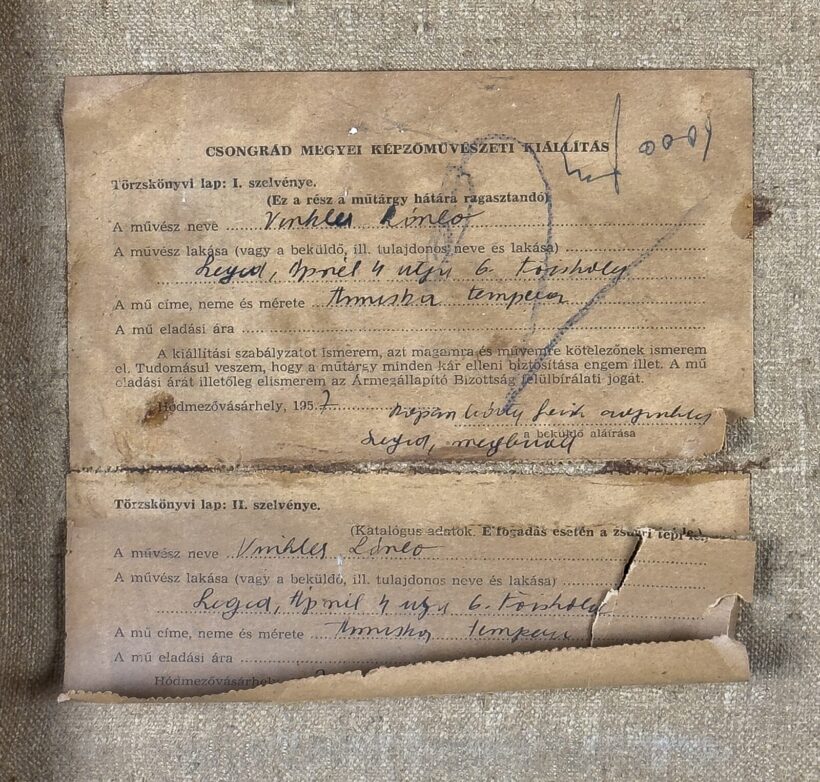 CSONGRÁD MEGYEI KÉPZŐMŰVÉSZETI KIÁLLÍTÁS
Törzskönyvi lap: I. szelvénye.
(Ez a rész a műtárgy hátára ragasztandó)
A művész neve Vinkler László
A művész lakása (vagy a beküldő, ill. tulajdonos neve és lakása)
Szeged, Április 4 útja 6.
A mű címe, neme és mérete Annuska tempera
A mű eladási ára
A kiállítási szabályzatot ismerem, azt magamra és művemre kötelezőnek ismerem
el. Tudomásul veszem, hogy a műtárgy minden kár elleni biztosítása engem illet. A mű
eladási árát illetőleg elismerem az Ármegállapító Bizottság felülbírálati jogát.
Hódmezővásárhely, 195 7
a beküldő aláírása
Szeged,
Törzskönyvi lap: II. szelvénye.
(Katalógus adatok. Elfogadás esetén a zsűri
A művész neve Vinkler László
A művész lakása (vagy a beküldő, ill. tulajdonos neve és lakása)
Szeged, Április 4 útja 6.
A mű címe, neme és mérete Annuska tempera
A mű eladási ára
Hódmezővásárhely